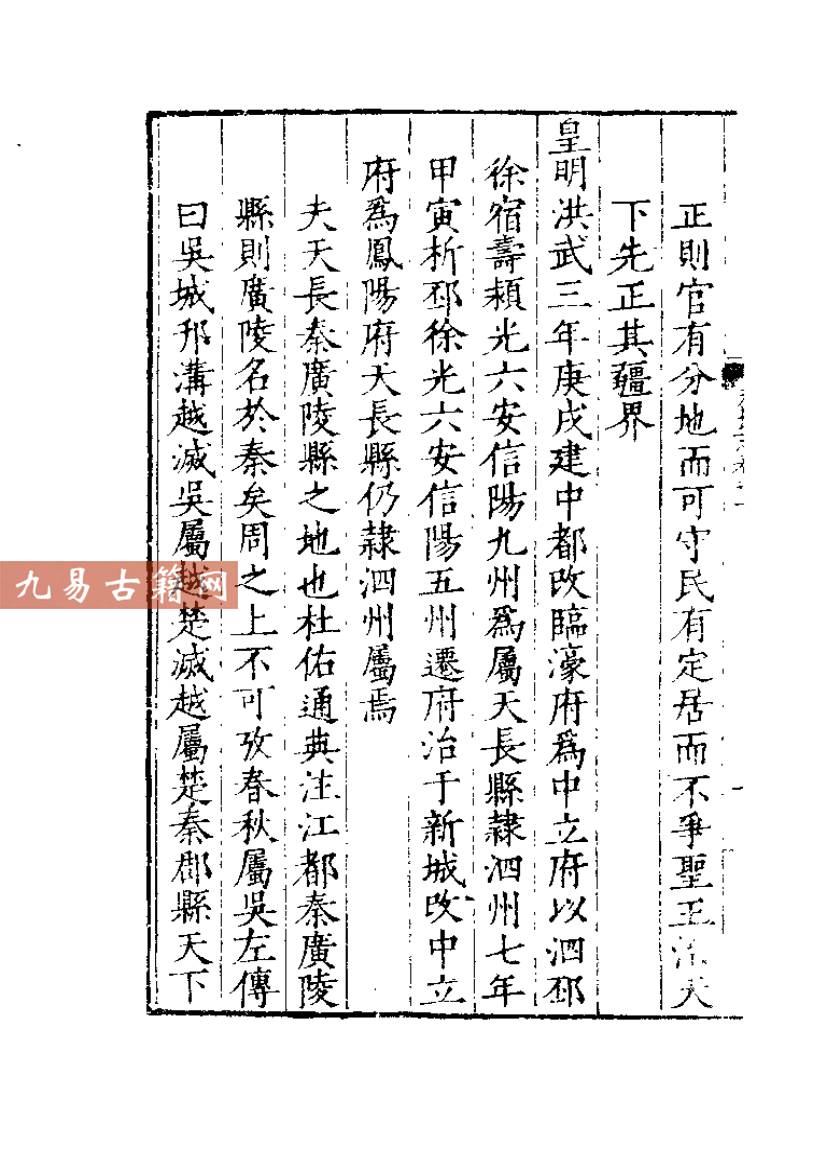 正則官有分地而可守民有定居而不爭聖王治天
下先正其疆界
皇明洪武三年庚戌建中都改臨濠府爲中立府以泗邳
徐宿壽頴光六安信陽九州爲屬天長縣隷泗州七年
甲寅析邳徐光六安信陽五州遷府治于新城改中立
府爲鳳陽府天長縣仍隷泗州屬焉
夫天長秦廣陵縣之地也杜佑通典注江都秦廣陵
縣則廣陵名於秦矣周之上不可攷春秋屬吳左傳
曰吳城邗溝越滅吳屬越楚滅越屬楚秦郡縣天下
九易古籍网